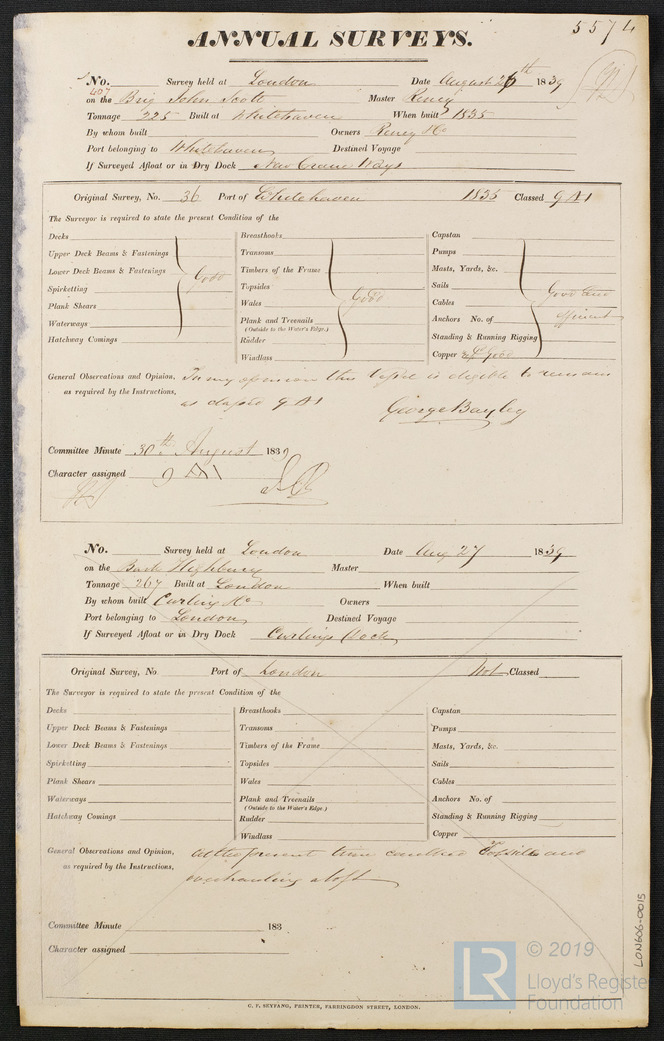 5574
ANNUAL SURVEYS.
No. Survey held at London Date August 26th 1839
407
on the Brig John Scott Master Reney
Tonnage 225 Built at Whitehaven When built 1835
By whom built Owners Reney & Co
Port belonging to Whitehaven Destined Voyage
If Surveyed Afloat or in Dry Dock New Crane Ways
Original Survey, No. 36 Port of Whitehaven 1835 Classed 9 A1
The Surveyor is required to state the present Condition of the
Decks
Upper Deck Beams & Fastenings
Lower Deck Beams & Fastenings
Spirketting
Plank Shears
Waterways
Hatchway Comings
Good
Breasthooks
Transoms
Timbers of the Frame
Topsides
Wales
Plank and Treenails
(Outside to the Water's Edge.)
Rudder
Windlass
Good
Capstan
Pumps
Masts, Yards, &c.
Sails
Cables
Anchors No. of
Standing & Running Rigging
Copper
Good and
efficient
General Observations and Opinion, In my opinion this Vessel is eligible to remain
as required by the Instructions,
as classed 9 A1
George Bayley
Committee Minute 30th August 1839
Character assigned 9 A1
No. Survey held at London Date Aug 27 1839
on the Bark Highbury Master
Tonnage 267 Built at London When built
By whom built Curling & Co Owners
Port belonging to London Destined Voyage
If Surveyed Afloat or in Dry Dock Curlings Dock
Original Survey, No Port of London Not Classed
The Surveyor is required to state the present Condition of the
Decks
Upper Deck Beams & Fastenings
Lower Deck Beams & Fastenings
Spirketting
Plank Shears
Waterways
Hatchway Comings
Breasthooks
Transoms
Timbers of the Frame
Topsides
Wales
Plank and Treenails
(Outside to the Water's Edge.)
Rudder
Windlass
Capstan
Pumps
Masts, Yards, &c.
Sails
Cables
Anchors No. of
Standing & Running Rigging
Copper
General Observations and Opinion, At the present time caulked Topsides and
as required by the Instructions,
overhauling aloft
Committee Minute 183
Character assigned
C. F. SEYFANG, PRINTER, FARRINGDON STREET, LONDON.
LON606-0015
LR © 2019
Lloyd's Register
Foundation